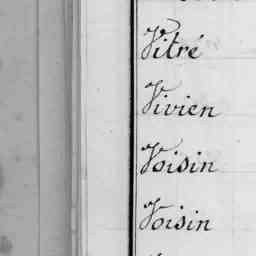 Vitré
Vivien
Voisin
Voisin